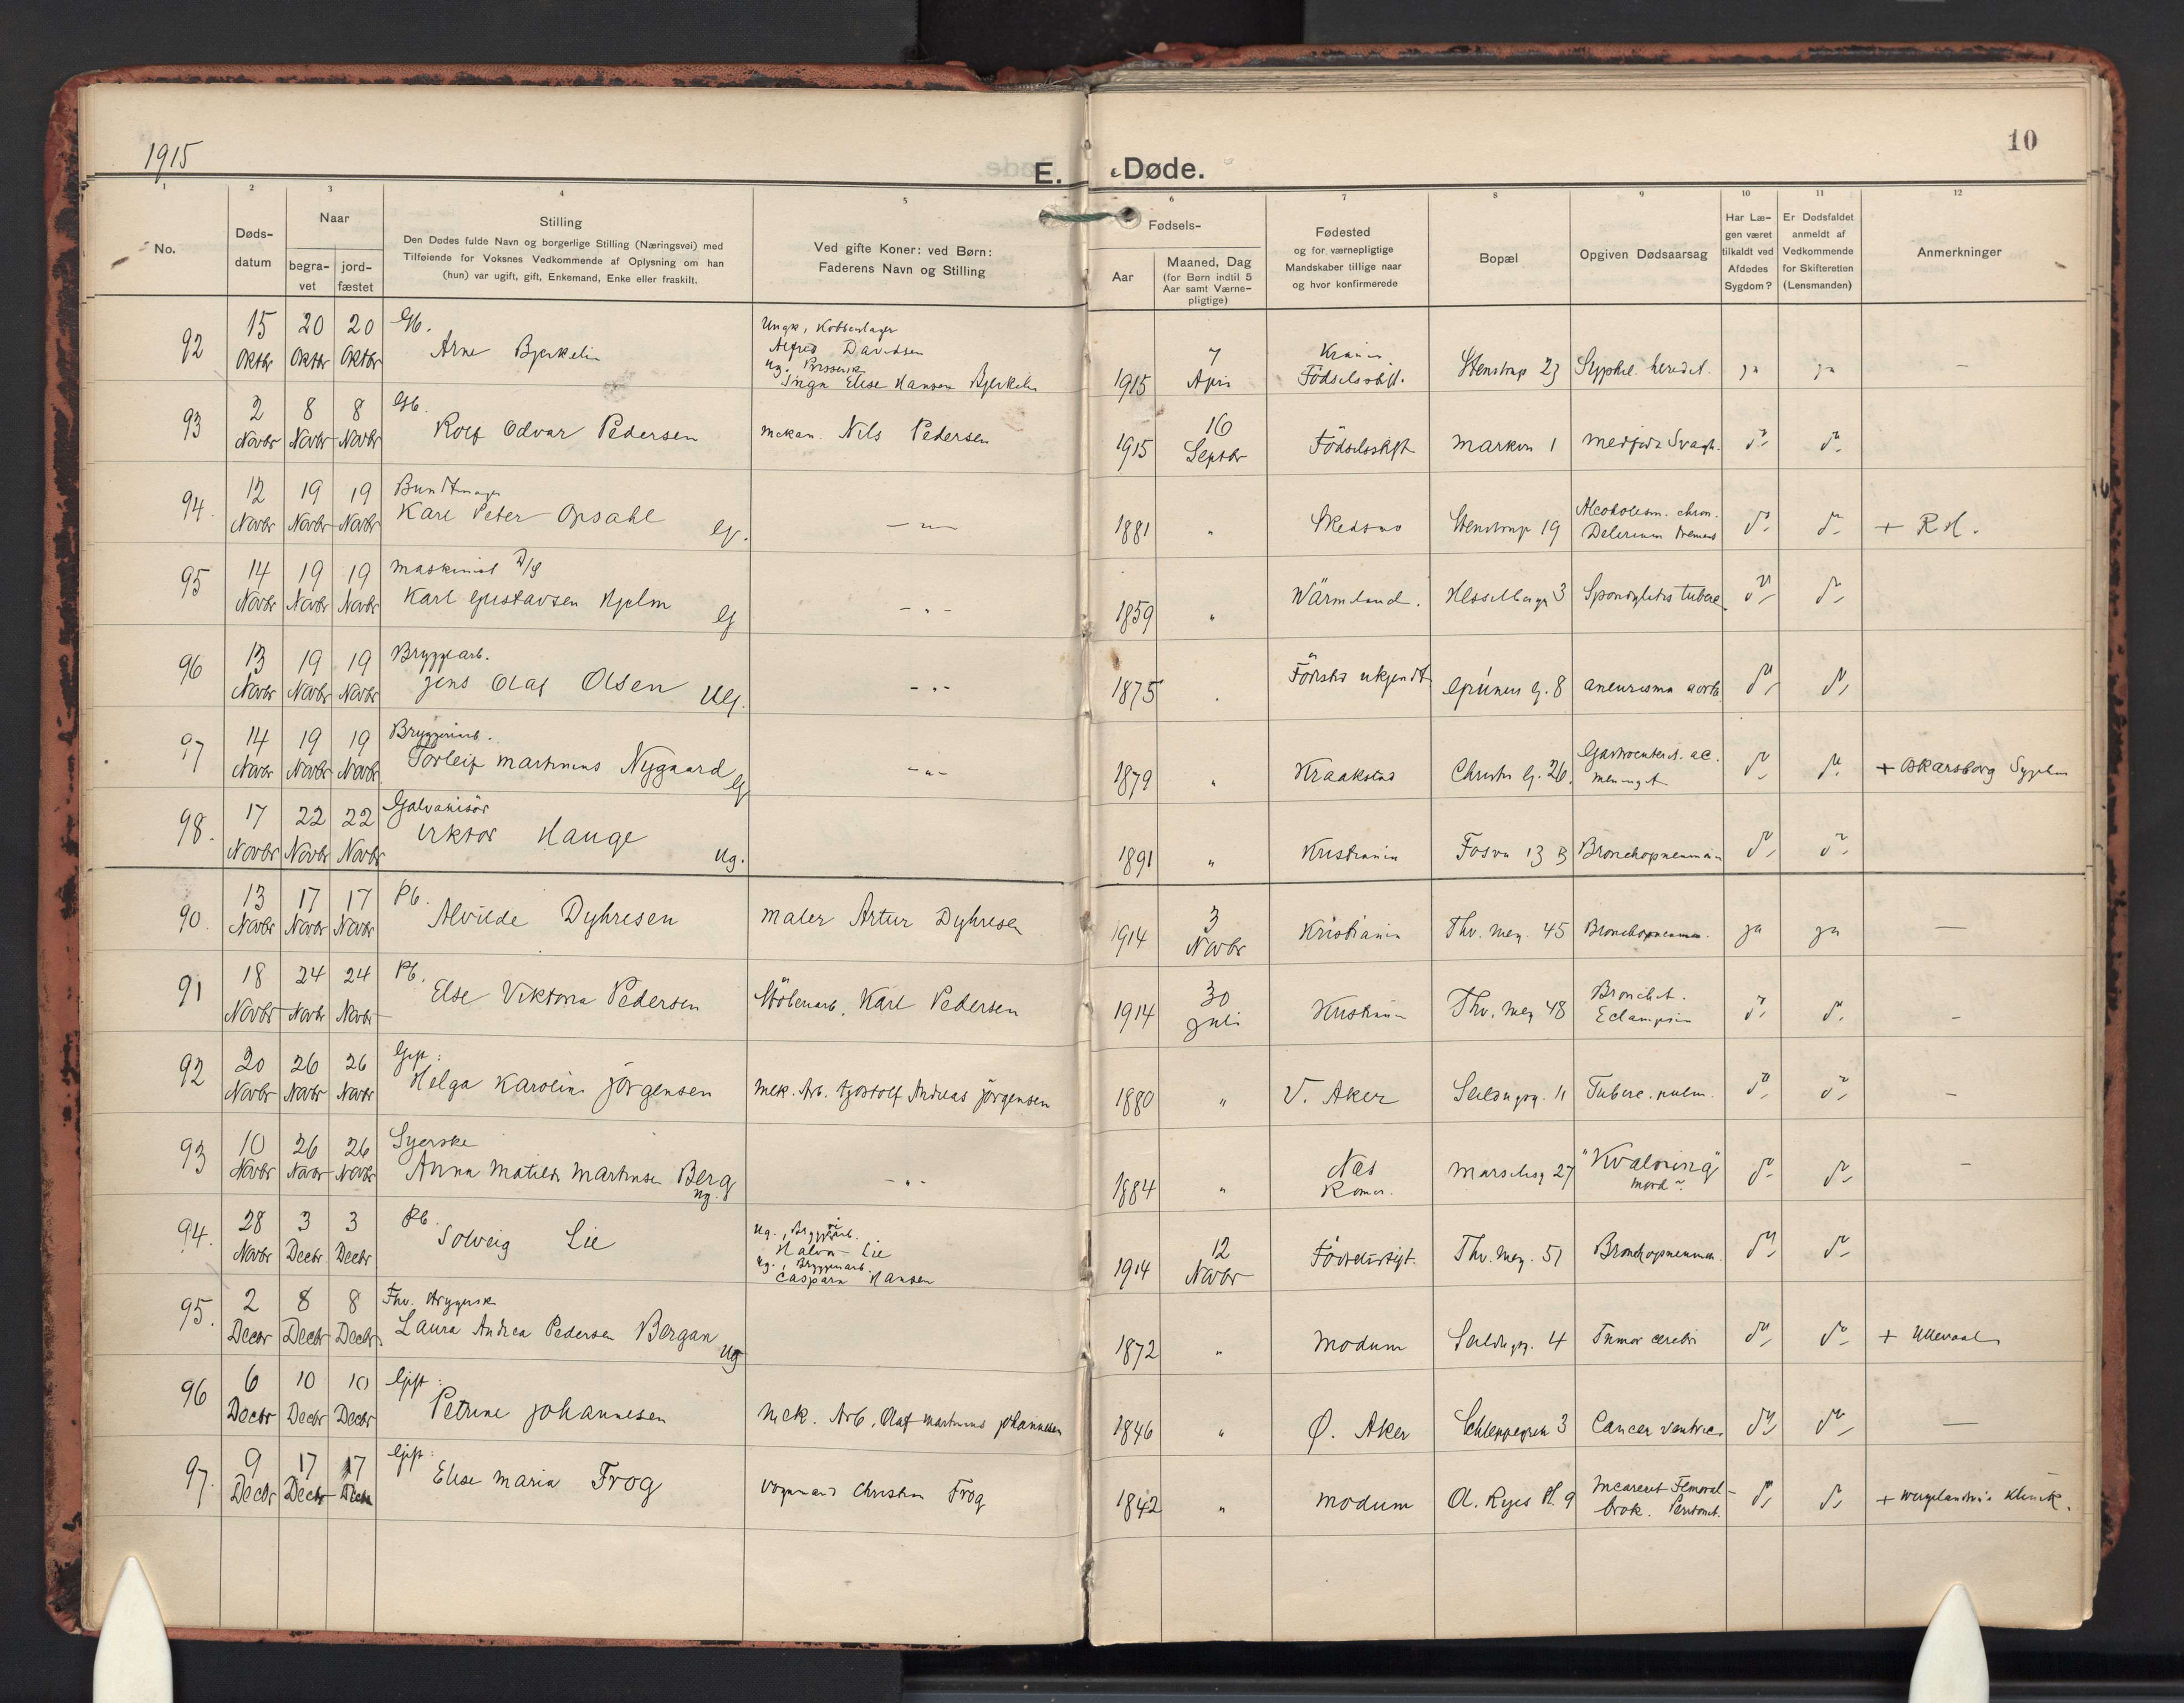 1915
E. Døde.
10
1 2 3 4 5 6 7 8 9 10 11 12
No.
Døds-
datum
Naar
begra-
vet
jord-
fæstet
Stilling
Den Dødes fulde Navn og borgerlige Stilling (Næringsvei) med
Tilføiende for Voksnes Vedkommende af Oplysning om han
(hun) var ugift, gift, Enkemand, Enke eller fraskilt.
Ved gifte Koner: ved Børn:
Faderens Navn og Stilling
Fødsels-
Aar
Maaned, Dag
(for Børn indtil 5
Aar samt Værne-
pligtige)
Fødested
og for værnepligtige
Mandskaber tillige naar
og hvor konfirmerede
Bopæl
Opgiven Dødsaarsag
Har Læ-
gen været
tilkaldt ved
Afdødes
Sygdom?
Er Dødsfaldet
anmeldt af
Vedkommende
for Skifteretten
(Lensmanden)
Anmerkninger
92 15 Oktbr 20 Oktbr 20 Oktbr Gb.
Arne Bjerkelin
Ungk,
Alfred Davidsen
Ug.
Inga Elise Hansen Bjerkelin
1915 7 April Födselsstift. Stenstrup 23 Syphil. heredit. ja ja —
93 2 Novbr 8 Novbr 8 Novbr Gb.
Rolf Odvar Pedersen mekan. Nils Pedersen
1915 16 Septbr Födselsstift Marken 1 medföd. Svagh. do do
94. 12 Novbr 19 Novbr 19 Novbr Bundtmager
Karl Peter Opsahl G. — " —
1881 " Skedsmo Stenstrup 19 Alcoholism. chron.
Delirium tremens do do + R.H.
95 14 Novbr 19 Novbr 19 Novbr Maskinist D/S
Karl Gustavsen Hjelm G — " —
1859 " Wärmland. Hesselbergs 3 Spondylitis tuberc. do do
96 13 Novbr 19 Novbr 19 Novbr Bryggearb.
Jens Olaf Olsen Ug. — " —
1875 " ukjendt Grüners g. 8 aneurisma aorta do do
97 14 Novbr 19 Novbr 19 Novbr Bryggeriarb.
Torleif Martinius Nygaard G — " —
1879 " Kraakstad Christies G. 26. Gastroenterit. ac.
Meningit. do do +
98. 17 Novbr 22 Novbr 22 Novbr Galvanisör
Viktor Hauge Ug.
1891 " Kristiania Fosvn 13 B Bronchopneumoni do do
90. 13 Novbr 17 Novbr 17 Novbr Pb.
Alvilde Dyhresen Maler Artur Dyhresen
1914 3 Novbr Kristiania Thv. Mey. 45 Bronchopneumon. ja ja —
91 18 Novbr 24 Novbr 24 Novbr Pb.
Else Viktoria Pedersen Möbelarb. Karl Pedersen
1914 30 Juli Kristiania Thv. Mey 48 Bronchit.
Eclampsia do do -
92 20 Novbr 26 Novbr 26 Novbr Gift:
Helga Karoline Jörgensen Mek. Arb. Andreas Jörgensen
1880 " V. Aker Seildugsg. 11 Tuberc. pulm. do do -
93 10 Novbr 26 Novbr 26 Novbr Syerske
Anna Matilde Martinsen Berg ug. — " —
1884 " Næs
Romer. Marselisg 27 "Kvælning"
mord do do -
94. 28 Novbr 3 Decbr 3 Decbr Pb.
Solveig Lie Ug., Bryggeriarb.
Halvor Lie
Ug., Bryggeriarb.
Caspara Hansen
1914 12 Novbr Födselsstift. Thv. Mey. 51 Bronchopneumon. do do
95. 2 Decbr 8 Decbr 8 Decbr Fhv.
Laura Andrea Pedersen Bergan ug
1872 " Modum Seildugsg. 4 Tumor cerebri do do + Ullevaal
96 6 Decbr 10 Decbr 10 Decbr Gift:
Petrine Johannesen Mek. Arb. Olaf Martinius Johannesen
1846 " Ø. Aker Schleppegren 3 Cancer ventric. do do —
97. 9 Decbr 17 Decbr 17 Decbr Gift:
Elise Maria Frog Vognmand Christian Frog
1842 " Modum O. Ryes Pl. 9 Incareret Femoral-
brok. Peritonit. do do + Klinik.